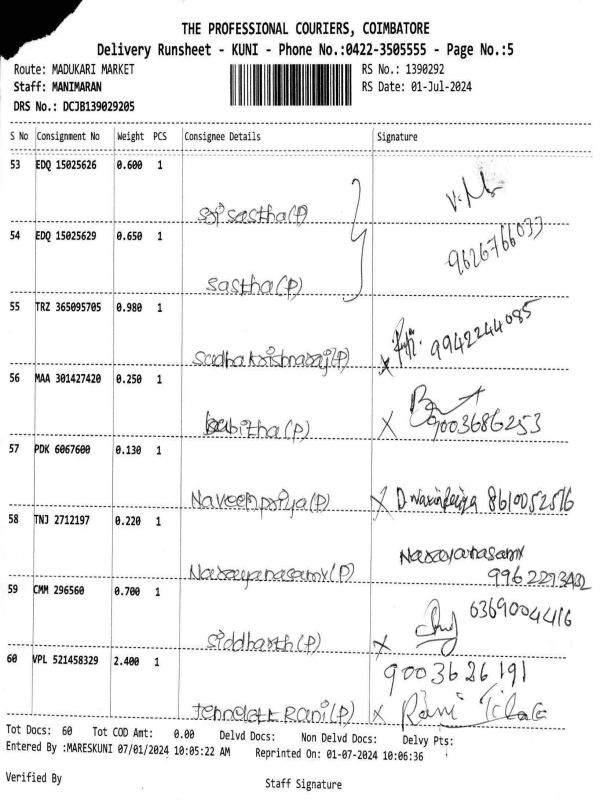 THE PROFESSIONAL COURIERS, COIMBATORE
Delivery Runsheet - KUNI - Phone No.:0422-3505555 - Page No.:5
Route: MADUKARI MARKET RS No.: 1390292
Staff: MANIMARAN RS Date: 01-Jul-2024
DRS No.: DCJB139029205
S No Consignment No Weight PCS Consignee Details Signature
53 EDQ 15025626 0.600 1
sri sastha(P)
54 EDQ 15025629 0.650 1
9626766033
sastha(P)
55 TRZ 365095705 0.980 1
9942244085
sadhakrishnaraj(P) X
56 MAA 301427420 0.250 1
babitha(P) X 9003686253
57 PDK 6067600 0.130 1
Naveenpriya(P) X 8610052516
58 TNJ 2712197 0.220 1
Narayanasamy
Narayanasamy(P) 9962293402
59 CMM 296560 0.700 1
6369004416
siddharth(P) X
60 VPL 521458329 2.400 1
9003626191
Rani(P) X Rani
Tot Docs: 60 Tot COD Amt: 0.00 Delvd Docs: Non Delvd Docs: Delvy Pts:
Entered By :MARESKUNI 07/01/2024 10:05:22 AM Reprinted On: 01-07-2024 10:06:36
Verified By Staff Signature